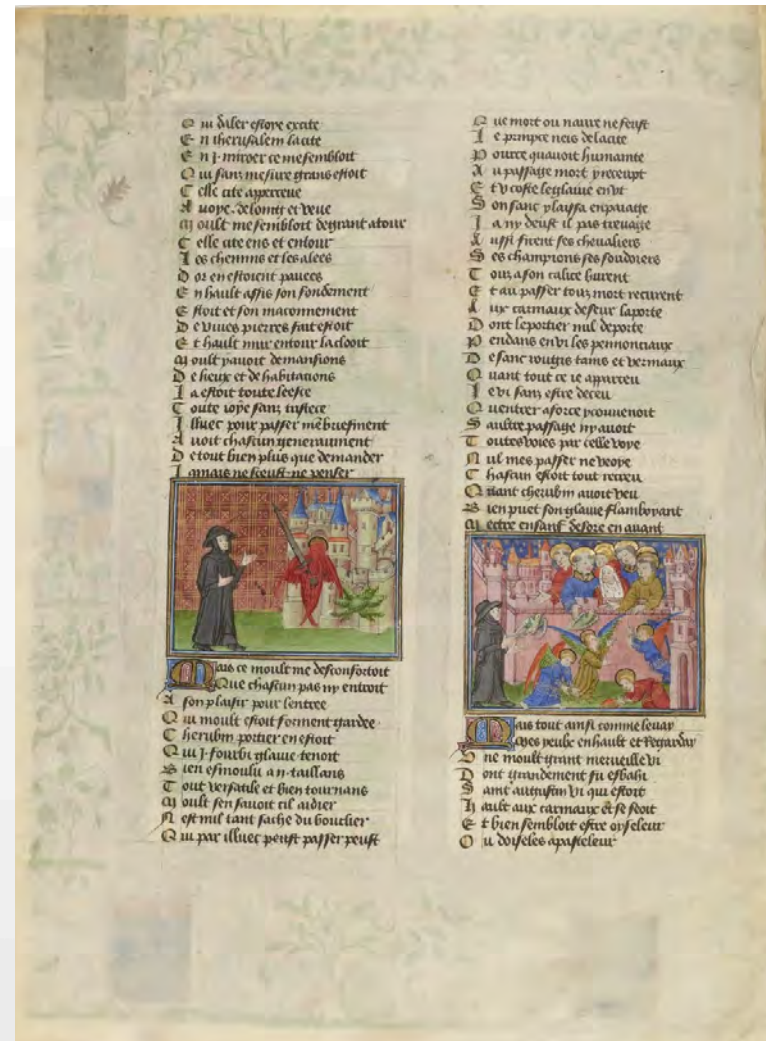 Q ui daler estoye excite
E n iherusalem la cite
E n j. miroer ce me sembloit
Q ui sanz mesure grans estoit
C elle cite apperceue
A uoye. de loing et veue
M oult me sembloit de grant atour
C elle cite ens et entour
L es chemins et les alees
D or en estoient pauees
E n hault assis son fondement
E stoit et son maconnement
D e viues pierres fait estoit
E t hault mur entour la clooit
M oult y auoit de mansions
D e lieux et de habitations
L a estoit toute leesce
T oute ioye sanz tristece
Illuec pour passer briefment
A uoit chascun generaument
D e tout bien plus que demander
I amais ne sceust ne penser
M ais ce moult me desconfortoit
Que chascun pas ny entroit
A son plaisir pour lentree
Q ui moult estoit forment gardee
C herubin portier en estoit
Q ui j. fourbi glaiue tenoit
B ien esmoulu a n. taillans
T out versatile et bien tournans
M oult sen sauoit cil aidier
N est nul tant sache du bouclier
Q ui par illuec peust passer peust
Q ue mort ou naure ne feust
L e prince neis de la cite
P ource quauoit humanite
A u passage mort y receupt
E t v coste le glaiue en vt
S on sanc y laissa en paiage
I a ny deust il pas treuage
A ussi firent ses cheualiers
S es champions ses soudoiers
T ouz a son calice burent
E t au passer touz mort recurent
A ux carniaux deseur la porte
D ont le portier nul deporte
P endans en vi les pennonciaux
D e sanc rougis tains et vermaux
Q uant tout ce ie apparceu
I e vi sanz estre deceu
Q uentrer a force y conuenoit
S aultre passage ny auoit
T outesvoies par celle voye
N ul mes passer ne veoye
C hascun estoit tout
Q uant cherubin auoit veu
B ien puet son glaiue flamboyant
M ectre en sauf desore en auant
M ais tout ainsi comme leuay
Mes yeulx en hault et Regarday
V ne moult grant merueille vi
D ont grandement fu esbahi
S aint augustin vi qui estoit
H ault aux carniaux et se seoit
E t bien sembloit estre oyseleur
O u doiseles apasteleur